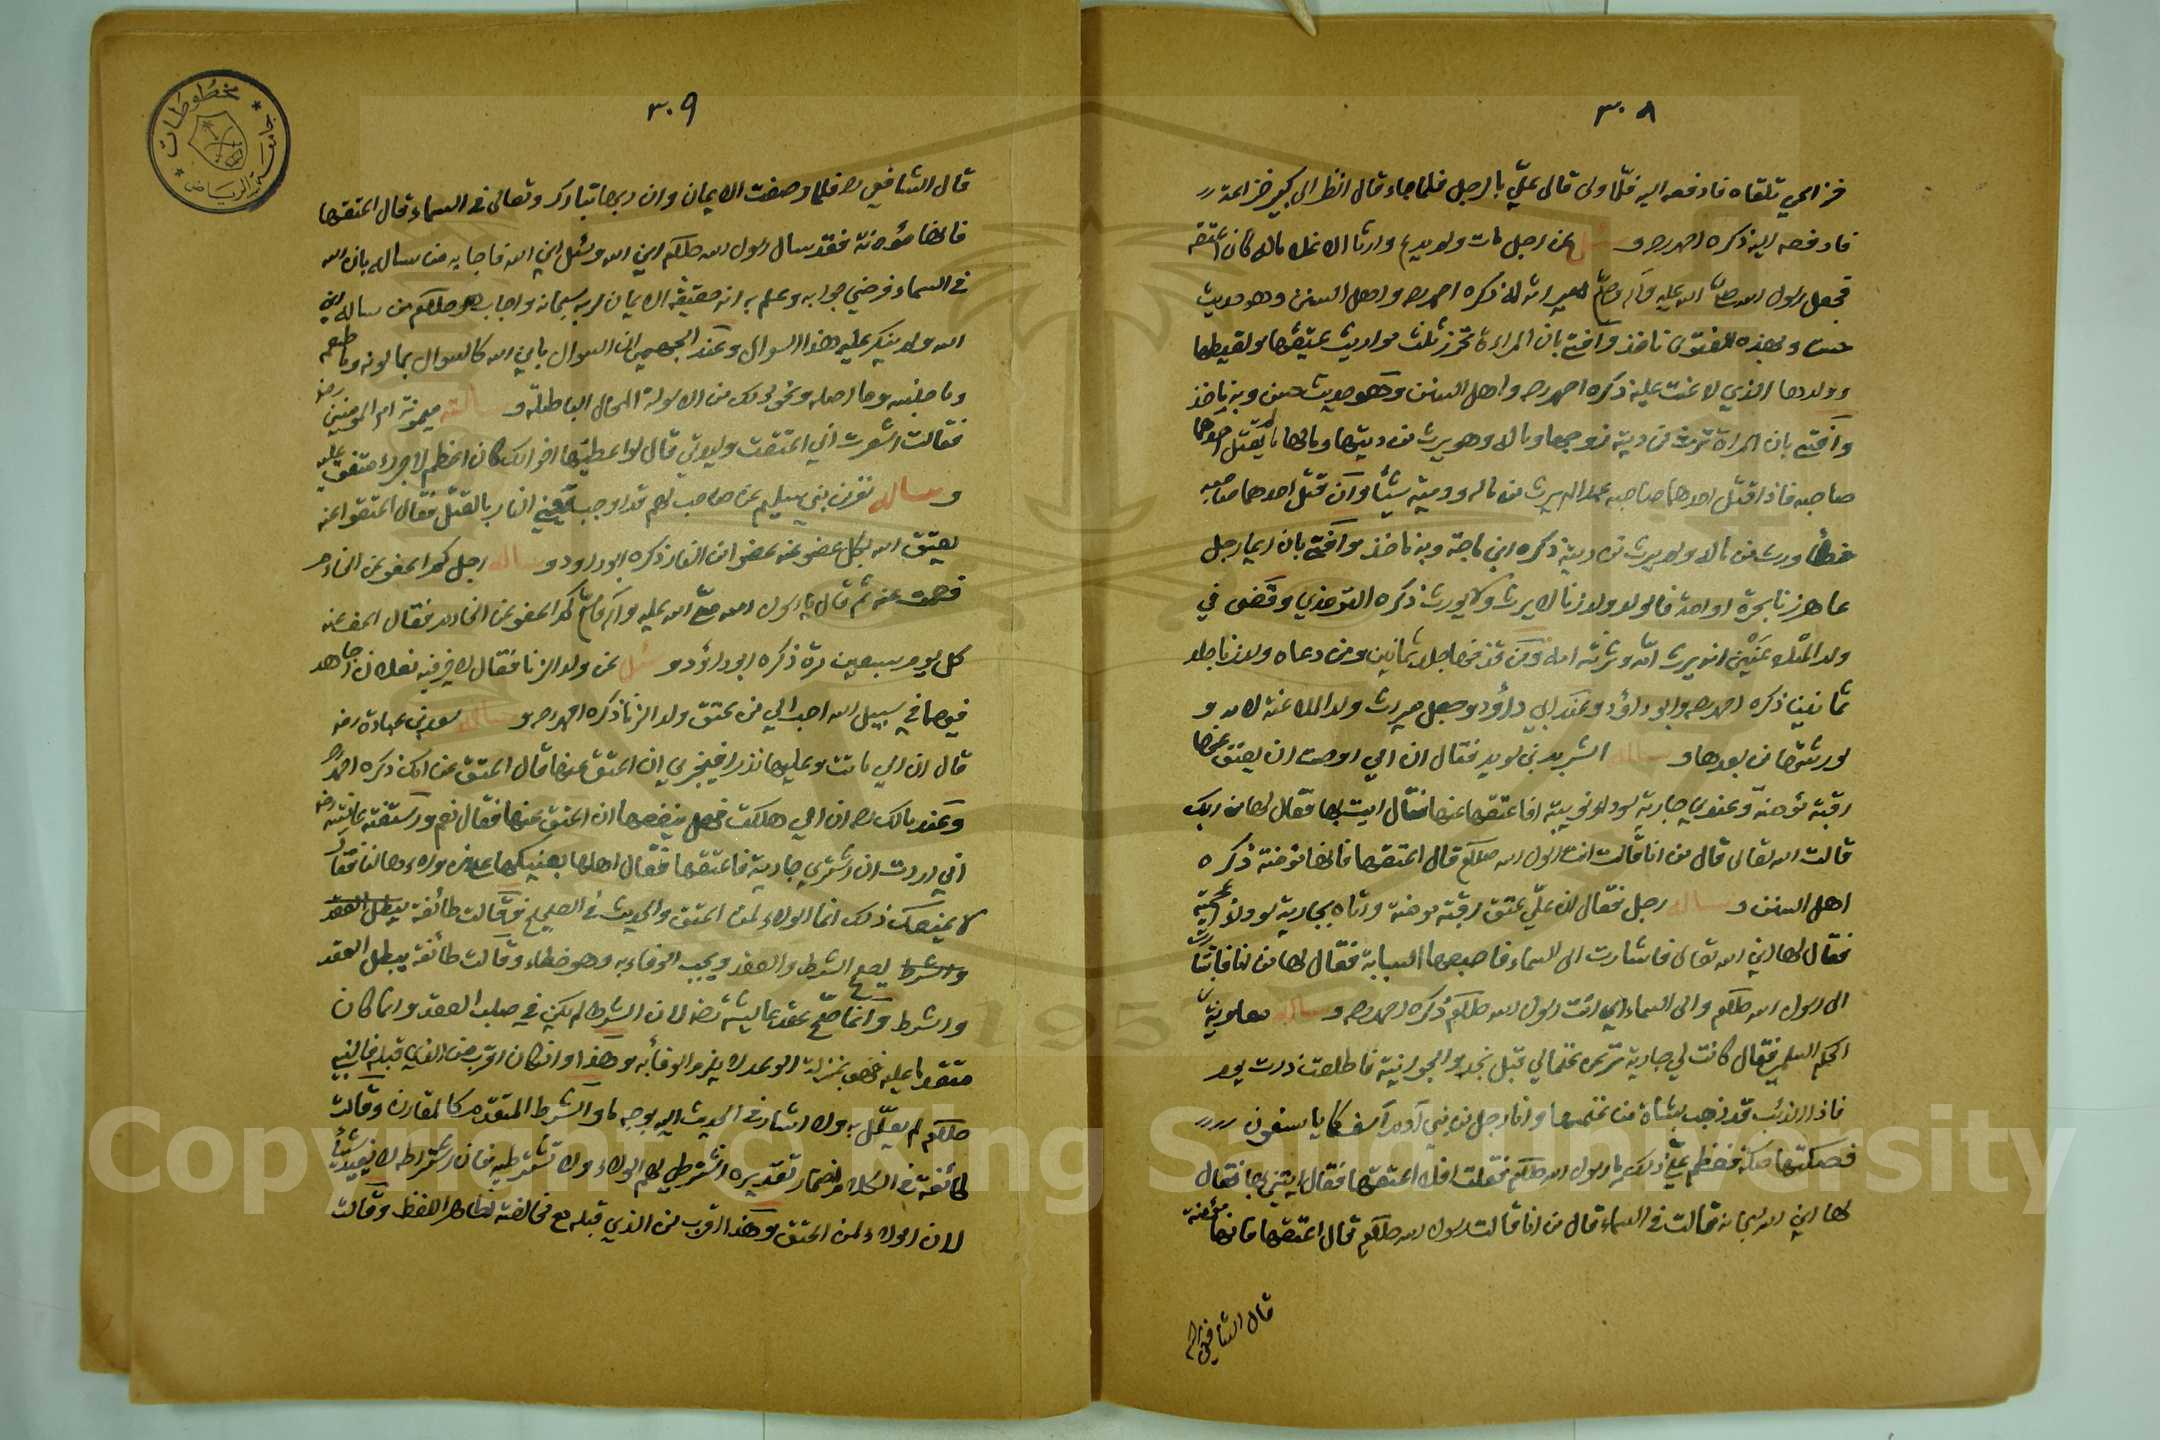 ٣٠٨
خزاعي تلقاه فادفعه اليه فلما ولى قال علي بالرجل فلما جاء قال انظر الى كبير خزاعة
فادفعه اليه ذكره احمد ره و سئل عن رجل مات ولم يدع وارثا الا غلاما له كان اعتقه
فجعل رسول الله صلى الله عليه وآله وسلم ميراثه له ذكره احمد ره واهل السنن وهو حديث
حسن وبهذه الفتوى ناخذ وافتى بان المراة تحرز ثلث مواريث عتيقها ولقيطها
وولدها الذي لاعنت عليه ذكره احمد ره واهل السنن وهو حديث حسن وبه ناخذ
وافتى بان المراة ترث من دية زوجها وماله وهو يرث من ديتها ومالها ما لم يقتل احدهما
صاحبه فاذا قتل احدهما صاحبه عمدا لم يرث من ماله وديته شيئا وان قتل احدهما صاحبه
خطأ ورث من ماله ولم يرث من ديته ذكره ابن ماجة وبه ناخذ وافتى بان ايما رجل
عاهر زنا بحرة او امة فالولد ولد زنا لا يرث ولا يورث ذكره الترمذي وقضى في
ولد المتلاعنين انه يرث امه وترثه امه ومن قذفها جلد ثمانين ومن دعاه ولد زنا جلد
ثمانين ذكره احمد ره وابو داؤد وعند ابي داؤد وجعل ميراث ولد الملاعنة لامه و
لورثتها من بعدها و ساله الشريد بن سويد فقال ان امي اوصت ان يعتق عنها
رقبة مؤمنة وعندي جارية سوداء نوبية افاعتقها عنها فقال ايت بها فقال لها من ربك
قالت الله تعالى قال من انا قالت انت رسول الله صللم قال اعتقها فانها مؤمنة ذكره
اهل السنن و ساله رجل فقال ان علي عتق رقبة مومنة واتاه بجارية سوداء اعجمية
فقال لها اين الله تعالى فاشارت الى السماء باصبعها السبابة فقال لها من انا فاشارت
الى رسول الله صللم والى السماء اي انت رسول الله صللم ذكره احمد ره و ساله معاوية بن
الحكم السلمي فقال كانت لي جارية ترعى غنما لي قبل نجد والجوانية فاطلعت ذات يوم
فاذا الذئب قد ذهب بشاة من غنمها وانا رجل من بني آدم آسف كما ياسفون
فصككتها صكة فعظم علي ذلك يا رسول الله صللم فقلت افلا اعتقها فقال ايتني بها فقال
لها اين الله سبحانه قالت في السماء قال من انا قالت رسول الله صللم قال اعتقها فانها مؤمنة
قال الشافعي ره
٣٠٩
قال الشافعي ره فلما وصفت الايمان وان ربها تبارك وتعالى في السماء قال اعتقها
فانها مؤمنة فقد سال رسول الله صللم اين الله وسئل اين الله فاجاب من ساله بان الله
في السماء فرضي جوابه وعلم به انه حقيقة الايمان لربه سبحانه واجاب هو صللم من ساله اين
الله ولم ينكر عليه هذا السوال وعند الجهمي ان السوال باين الله كالسوال بما لونه وما طعمه
وما جنسه وما اصله ونحو ذلك من الاسولة المحال الباطلة و سالته ميمونة ام المومنين رض
فقالت اشعرت اني اعتقت وليدتي قال لو اعطيتها اخوالك كان اعظم لاجرك متفق عليه
و ساله نفر من بني سليم عن صاحب لهم قد اوجب يعني النار بالقتل فقال اعتقوا عنه
يعتق الله بكل عضو منه عضوا من النار ذكره ابو داود و ساله رجل كم اعفو عن الخادم
فصمت عنه ثم قال يا رسول الله صلى الله عليه وآله وسلم كم اعفو عن الخادم فقال اعف عنه
كل يوم سبعين مرة ذكره ابو داؤد و سئل عن ولد الزنا فقال لا خير فيه نعلان اجاهد
فيهما في سبيل الله احب الي من عتق ولد الزنا ذكره احمد ره و ساله سعد بن عبادة رض
قال ان امي ماتت وعليها نذر افيجزي ان اعتق عنها قال اعتق عن امك ذكره احمد ره
وعند مالك ره ان امي هلكت فهل ينفعها ان اعتق عنها فقال نعم واستفته عائشة رض
اني اردت ان اشتري جارية فاعتقها فقال اهلها نبيعكها على ان ولاءها لنا فقال
لا يمنعك ذلك انما الولاء لمن اعتق والحديث في الصحيح وقالت طائفة يبطل العقد
والشرط يصح الشرط والعقد ويجب الوفاء به وهو خطاء وقالت طائفة يبطل العقد
والشرط وانما صح عقد عائشة رض لان الشرط لم يكن في صلب العقد وانما كان
متقدما عليه فهو بمنزلة الوعد لا يلزم الوفاء به وهذا وان كان اقرب من الذي قبله فالنبي
صللم لم يعلل به ولا اشار في الحديث اليه بوجه ما والشرط المتقدم كالمقارن وقالت
طائفة في الكلام اضمار تقديره اشترطي لهم الولاء ولا تشترطيه فان اشتراطه لا يفيد شيئا
لان الولاء لمن اعتق وهذا اقرب من الذي قبله مع مخالفته لظاهر اللفظ وقالت
مخطوطات
جامعة الرياض
1957
Copyright © King Saud University